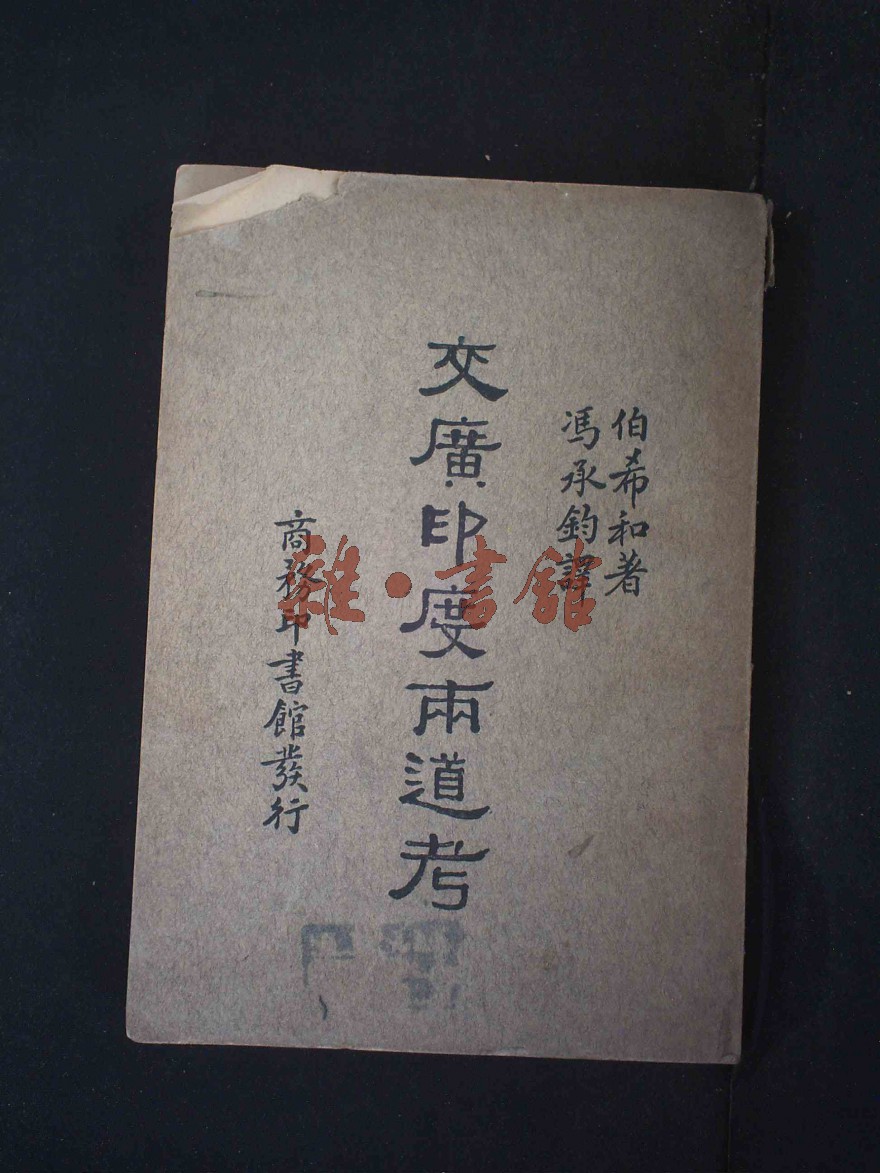 伯希和著
馮承鈞譯
交廣印度兩道考
商務印書館發行
雜·書館